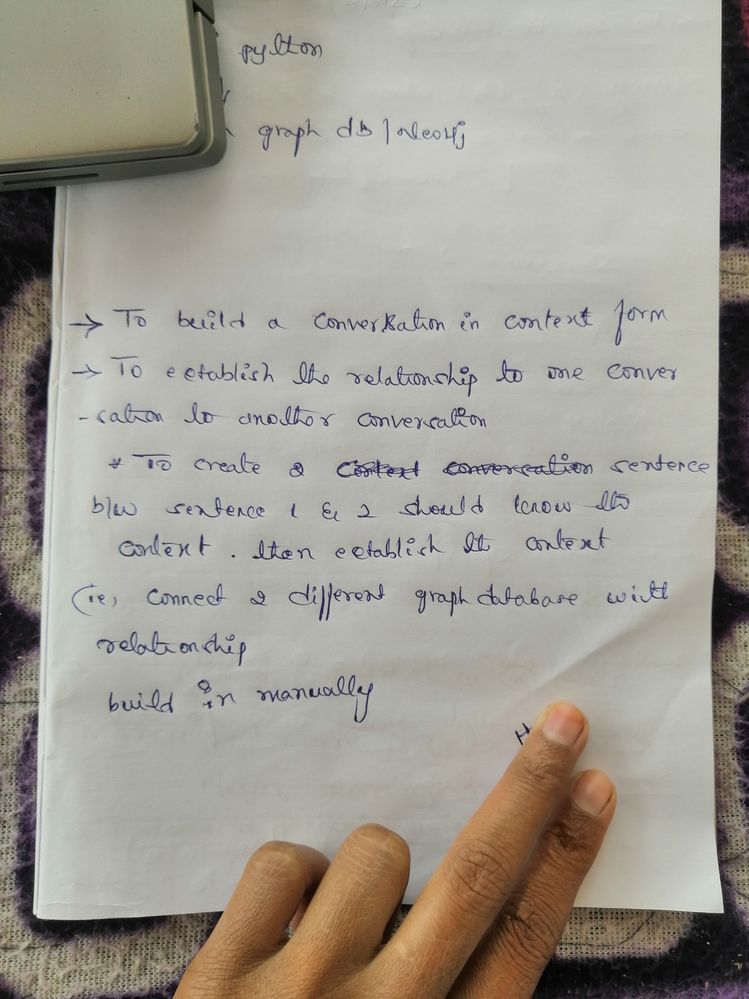 python
graph db / Neo4j
→ To build a conversation in context form
→ To establish the relationship to one conver
- sation to another conversation
* To create 2 context conversation sentence
b/w sentence 1 & 2 should know the
context. then establish the context
(ie, connect 2 different graph database with
relationship
build in manually
H